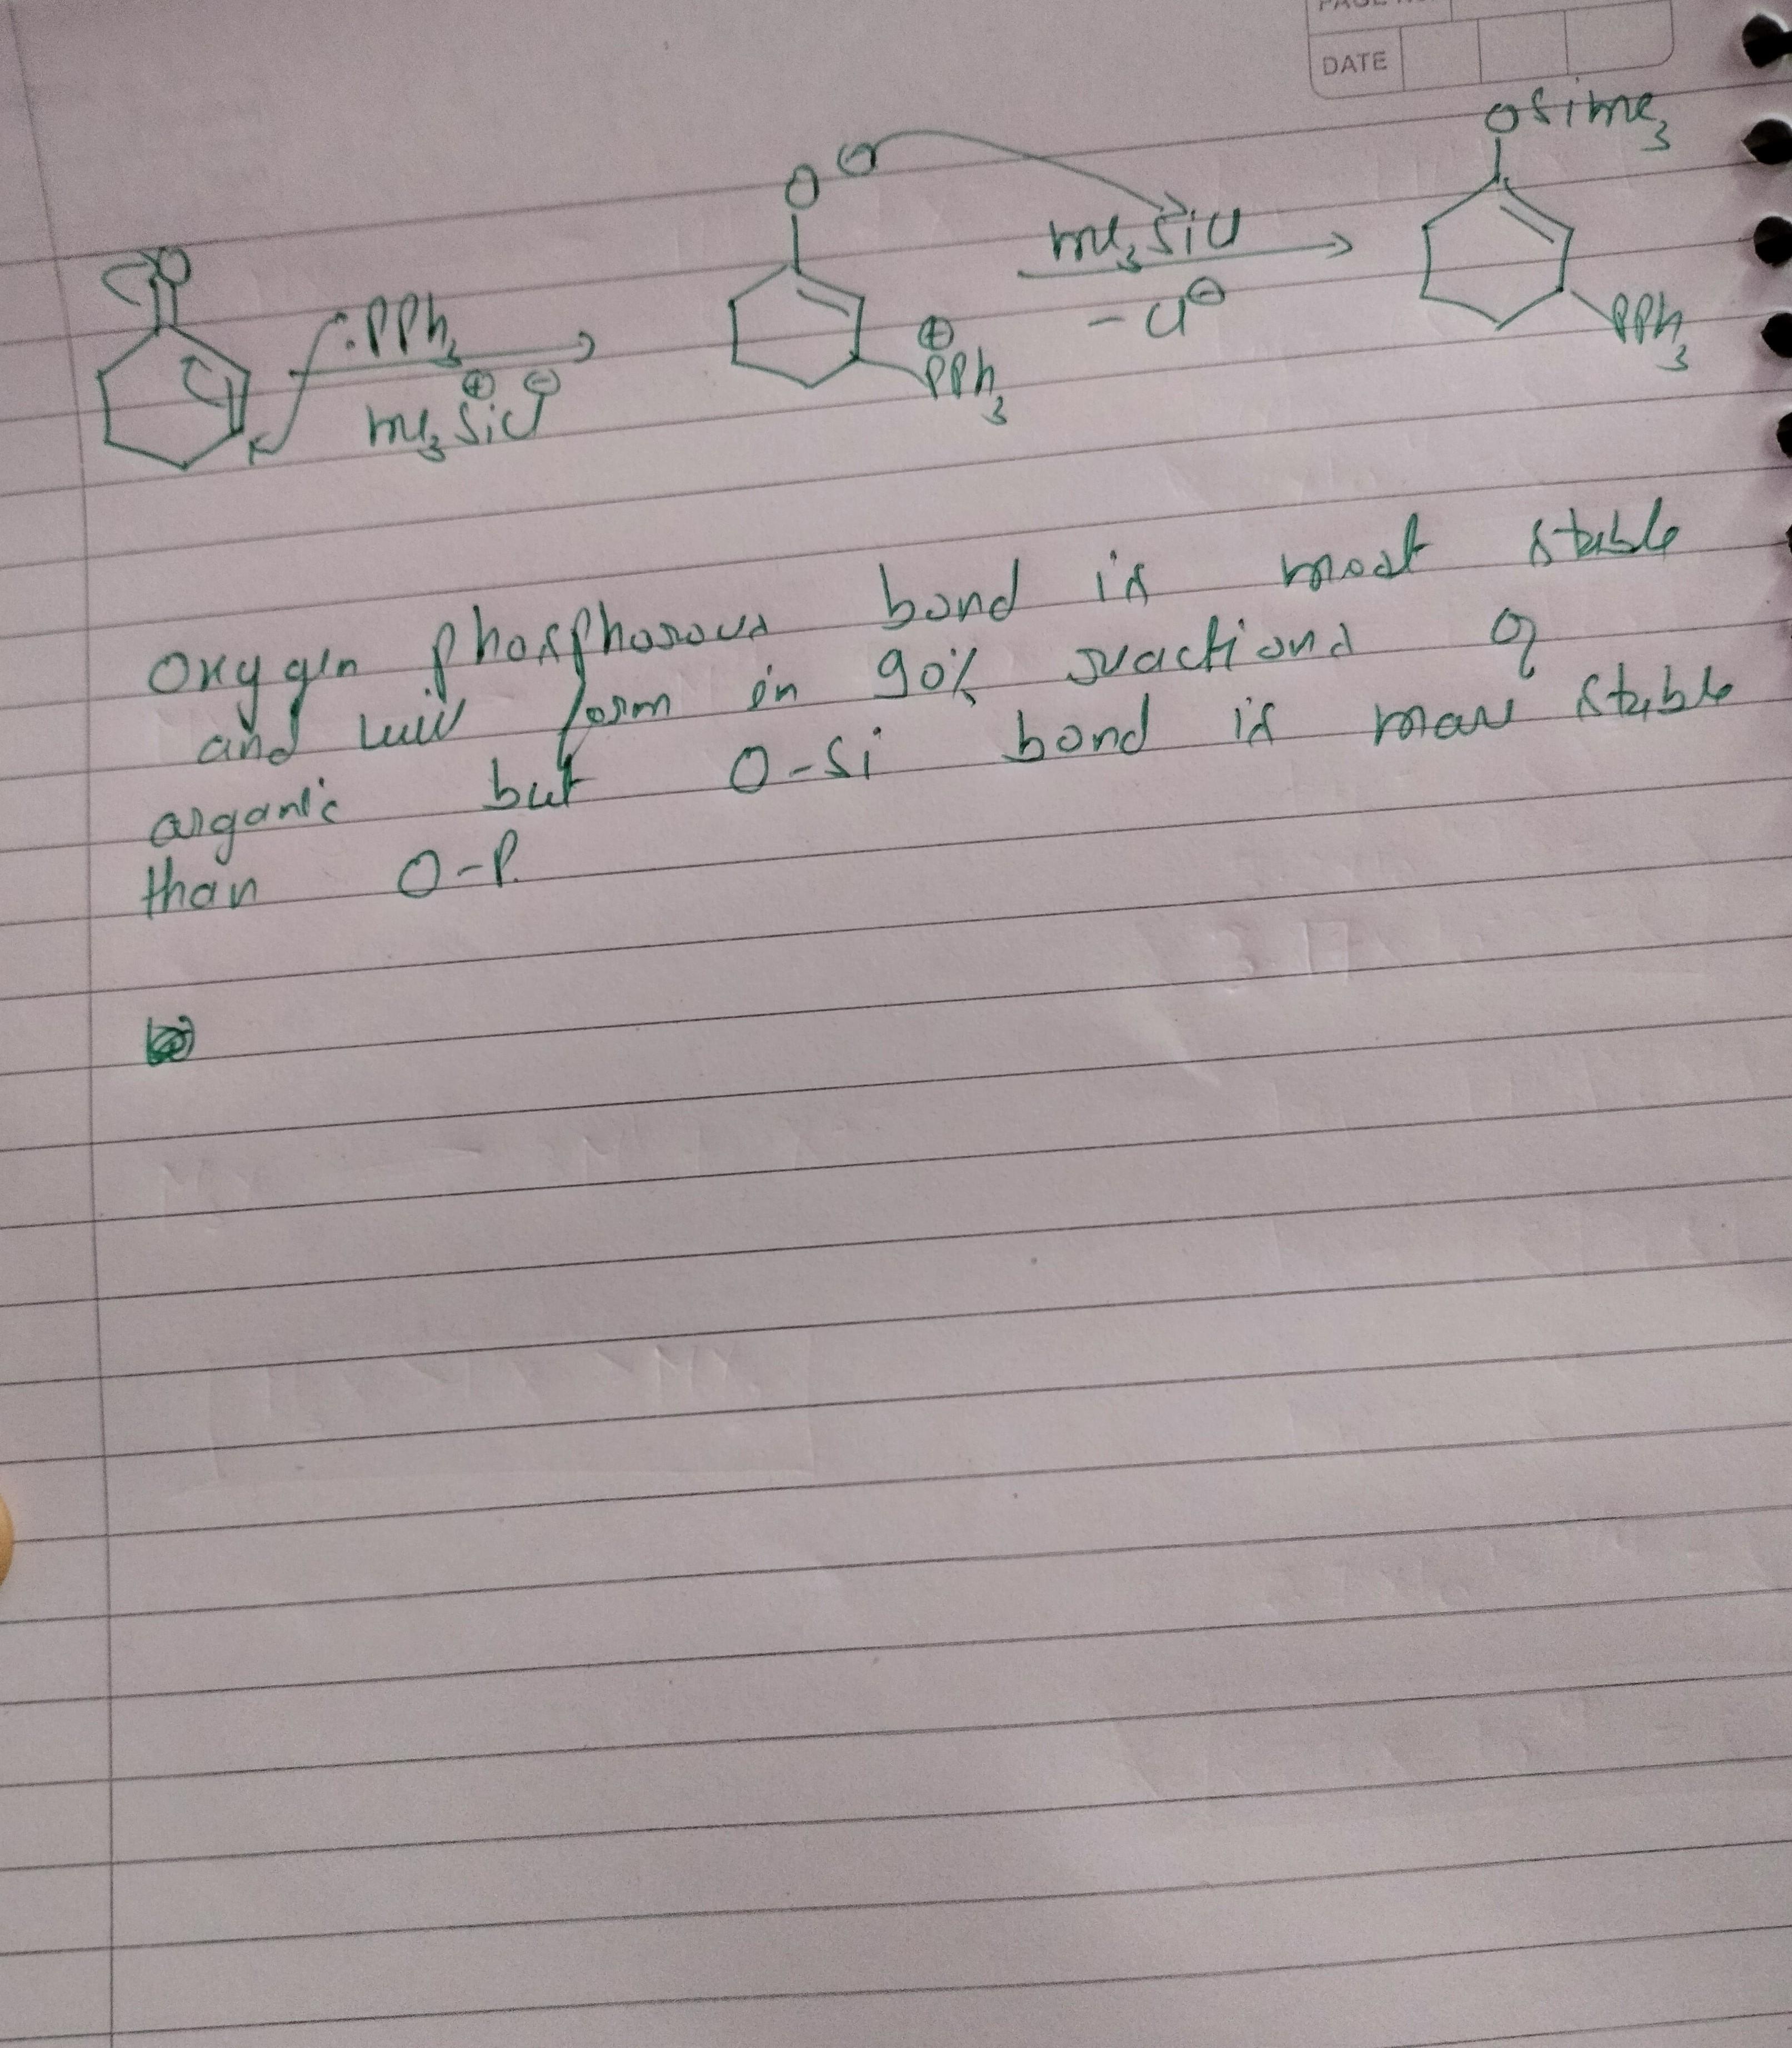 DATE
OSiMe3
O ⊖
O
:PPh3
Me3SiCl
⊕ ⊖
Me3SiCl
-Cl⊖
⊕
PPh3
PPh3
Oxygen phosphorous bond is most stable
and will form in 90% reactions of
organic but O-Si bond is more stable
than O-P.